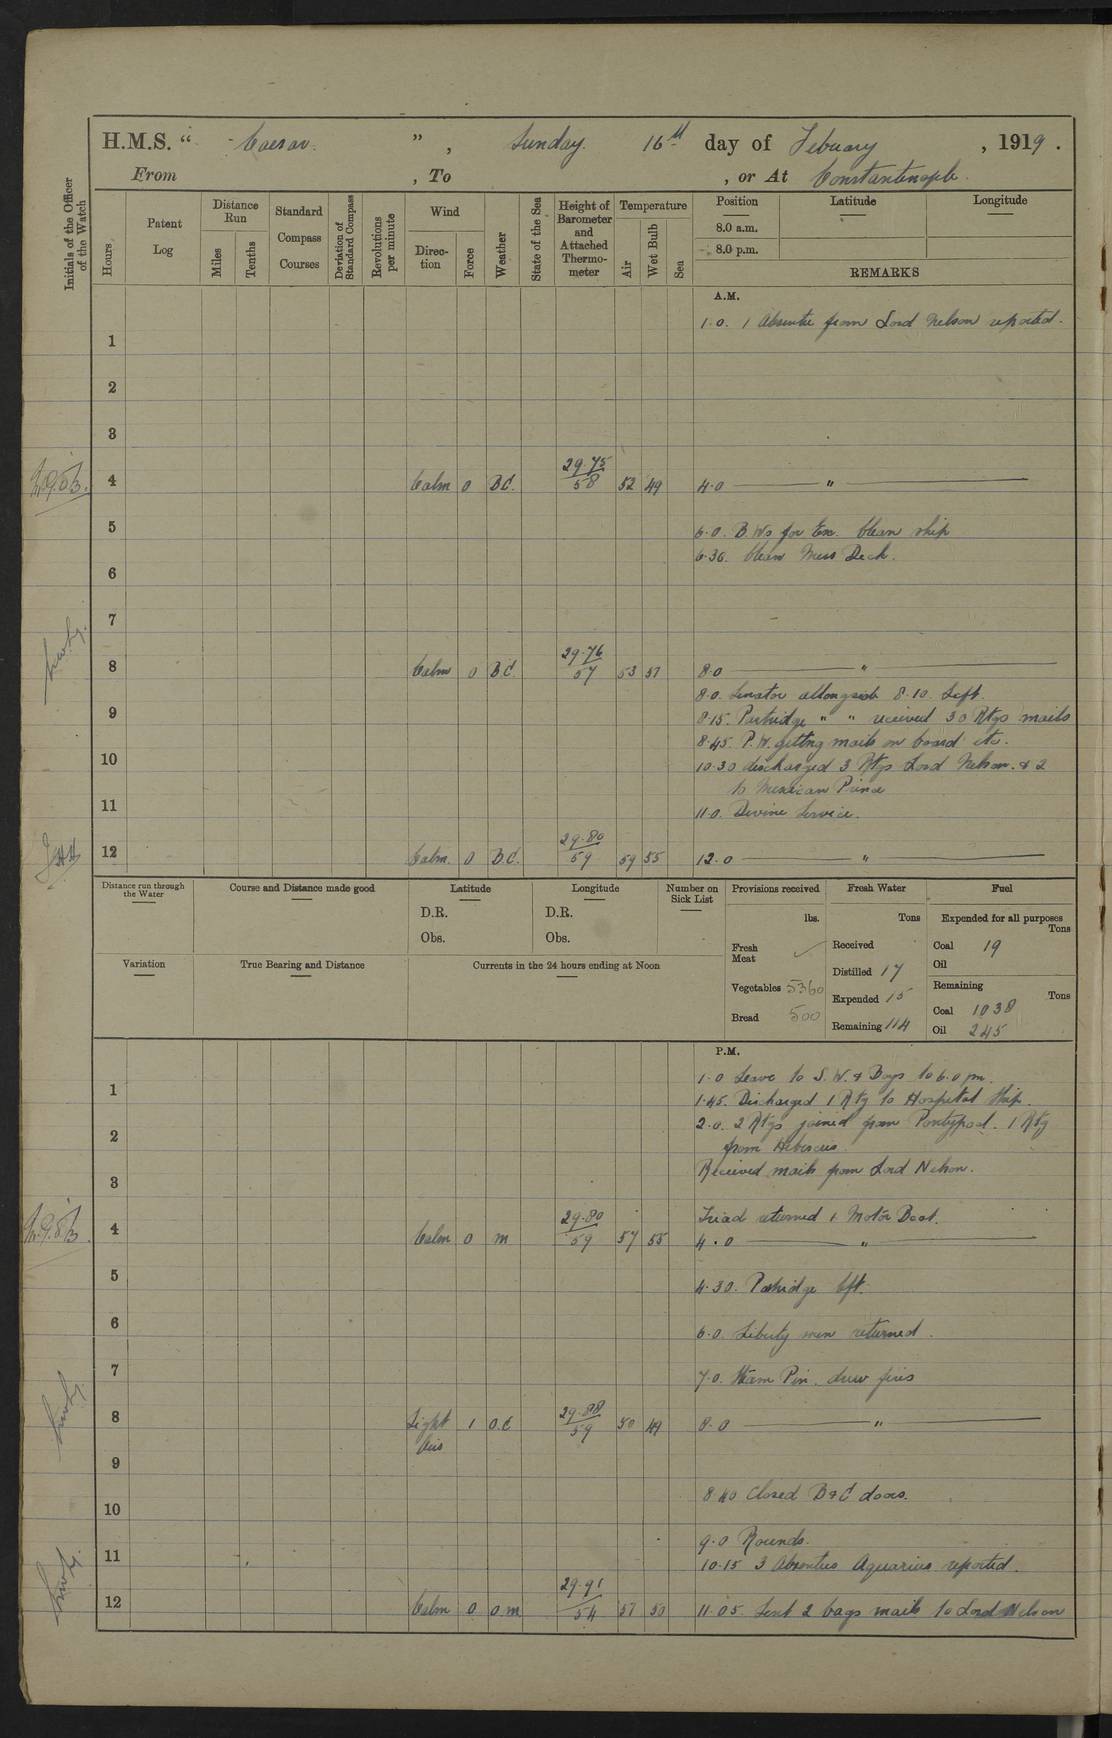 H.M.S. “ Caesar. ” , Sunday. 16th day of Febuary , 1919 .
From , To , or At Constantinople.
Initials of the Officer of the Watch
Hours
Patent Log
Distance Run
Miles
Tenths
Standard Compass Courses
Deviation of Standard Compass
Revolutions per minute
Wind
Direc-tion
Force
Weather
State of the Sea
Height of Barometer and Attached Thermo-meter
Temperature
Air
Wet Bulb
Sea
Position Latitude Longitude
8.0 a.m.
8.0 p.m.
REMARKS
A.M.
1.0. 1 Absentee from Lord Nelson reported.
1
2
3
4 Calm 0 B.C. 29.75 / 58 52 49 4.0 ——— " ———
5 6.0. B.Ws for Ex. Clean ship
6.30. Clean Mess Deck.
6
7
8 Calm 0 B.C. 29.76 / 57 53 51 8.0 ——— " ———
8.0. Senator allongside 8.10. Left.
9 8.15. Partridge " " received 30 Rtgs mails
8.45. P.W. getting mails on board etc.
10 10.30 discharged 3 Rtgs Lord Nelson. & 2
to Mexican Prince
11 11.0. Devine Service.
12 Calm. 0 B.C. 29.80 / 59 59 55 12.0 ——— " ———
Distance run through the Water
Course and Distance made good
Latitude
D.R.
Obs.
Longitude
D.R.
Obs.
Number on Sick List
Provisions received
lbs.
Fresh Meat
Vegetables 5360
Bread 500
Fresh Water
Tons
Received
Distilled 17
Expended 15
Remaining 114
Fuel
Expended for all purposes
Tons
Coal 19
Oil
Remaining
Tons
Coal 1038
Oil 245
Variation
True Bearing and Distance
Currents in the 24 hours ending at Noon
P.M.
1.0 Leave to S.W. & Boys to 6.0 pm.
1 1.45. Discharged 1 Rtg to Hospital Ship.
2.0. 2 Rtgs joined from Pontypool. 1 Rtg
2 from Hibiscus.
Received mails from Lord Nelson.
3
Triad returned 1 Motor Boat.
4 Calm 0 m 29.80 / 59 57 55 4.0 ——— " ———
5 4.30. Partridge left.
6 6.0. Liberty men returned.
7 7.0. Steam Pin. drew fires
8 Light Airs 1 O.C 29.88 / 59 50 49 8.0 ——— " ———
9
8.40 Closed B & C doors.
10
9.0 Rounds.
11 10.15 3 Absentees Aquarius reported.
12 Calm 0 o.m 29.91 / 54 51 50 11.05. Sent 2 bags mails to Lord Nelson